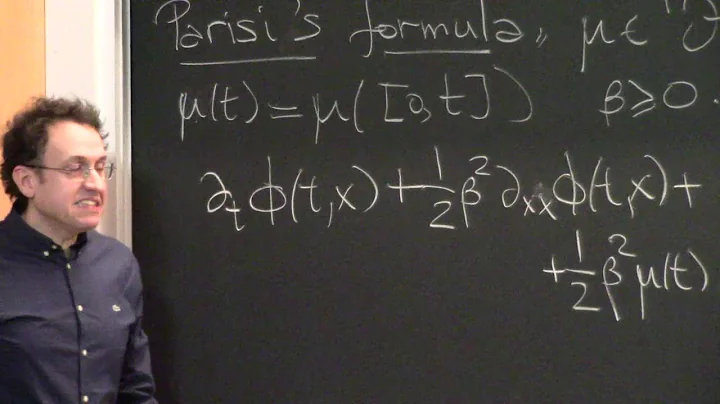 Parisi's formula, μ ∈
μ(t) = μ([0,t]) β ≥ 0.
∂ₜϕ(t,x) + 1/2 β² ∂ₓₓϕ(t,x) +
+ 1/2 β² μ(t)